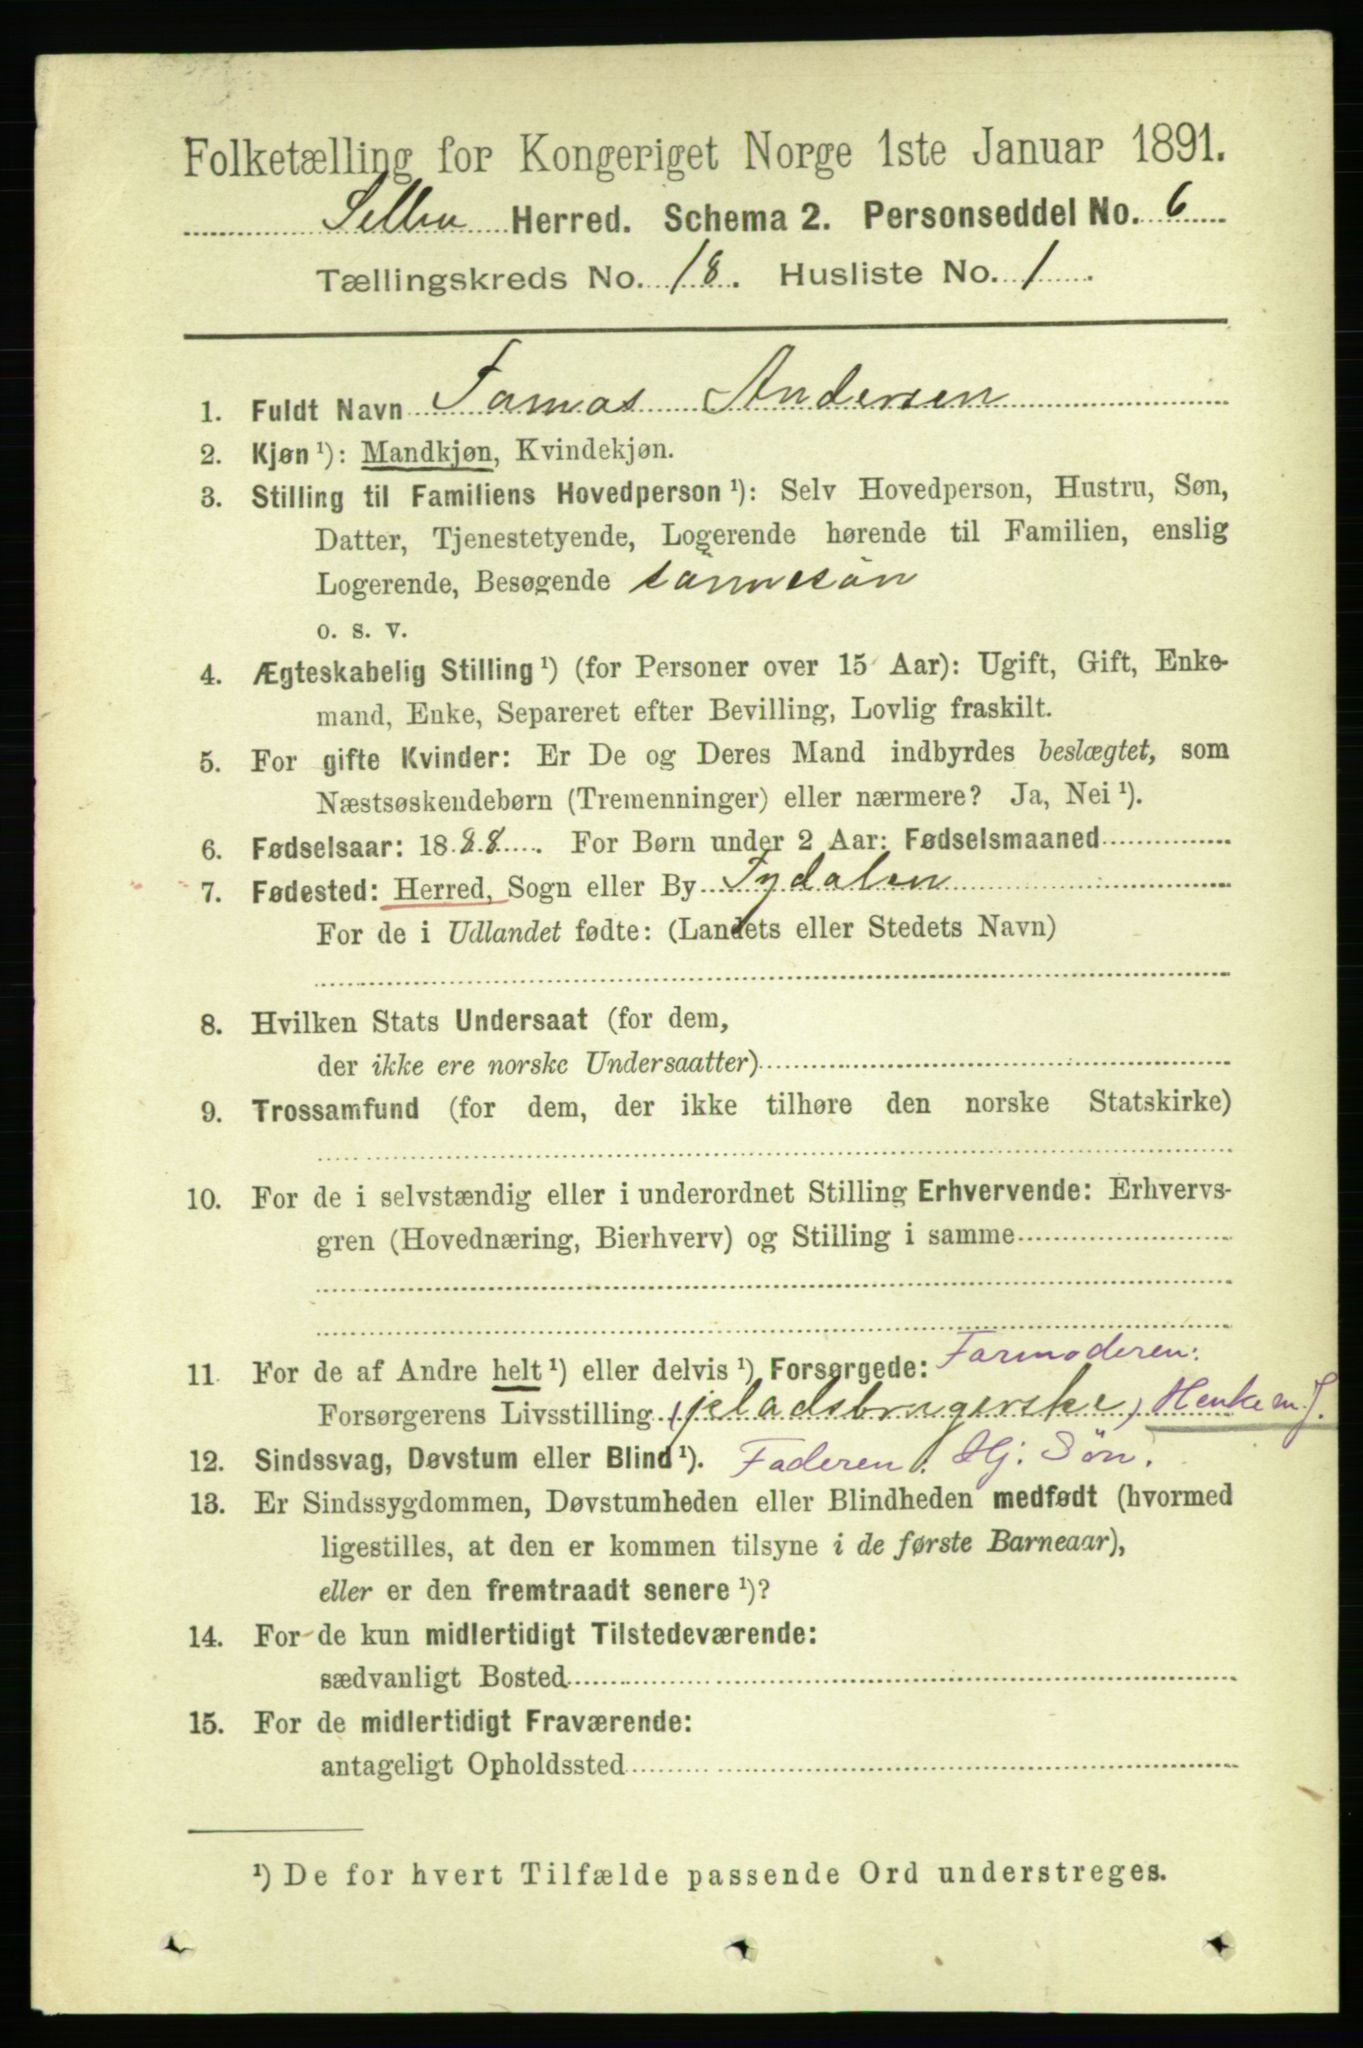 Folketælling for Kongeriget Norge 1ste Januar 1891.
Selbu Herred. Schema 2. Personseddel No. 6
Tællingskreds No. 18. Husliste No. 1
1. Fuldt Navn Tomas Andersen
2. Kjøn ¹): Mandkjøn, Kvindekjøn.
3. Stilling til Familiens Hovedperson ¹): Selv Hovedperson, Hustru, Søn,
Datter, Tjenestetyende, Logerende hørende til Familien, enslig
Logerende, Besøgende sønnesøn
o. s. v.
4. Ægteskabelig Stilling ¹) (for Personer over 15 Aar): Ugift, Gift, Enke-
mand, Enke, Separeret efter Bevilling, Lovlig fraskilt.
5. For gifte Kvinder: Er De og Deres Mand indbyrdes beslægtet, som
Næstsøskendebørn (Tremenninger) eller nærmere? Ja, Nei ¹).
6. Fødselsaar: 1888. For Børn under 2 Aar: Fødselsmaaned
7. Fødested: Herred, Sogn eller By Tydalen
For de i Udlandet fødte: (Landets eller Stedets Navn)
8. Hvilken Stats Undersaat (for dem,
der ikke ere norske Undersaatter)
9. Trossamfund (for dem, der ikke tilhøre den norske Statskirke)
10. For de i selvstændig eller i underordnet Stilling Erhvervende: Erhvervs-
gren (Hovednæring, Bierhverv) og Stilling i samme
11. For de af Andre helt ¹) eller delvis ¹) Forsørgede: Farmoderen:
Forsørgerens Livsstilling (pladsbrugerske) Henke m J.
12. Sindssvag, Døvstum eller Blind ¹). Faderen: Hj. Søn.
13. Er Sindssygdommen, Døvstumheden eller Blindheden medfødt (hvormed
ligestilles, at den er kommen tilsyne i de første Barneaar),
eller er den fremtraadt senere ¹)?
14. For de kun midlertidigt Tilstedeværende:
sædvanligt Bosted
15. For de midlertidigt Fraværende:
antageligt Opholdssted
¹) De for hvert Tilfælde passende Ord understreges.